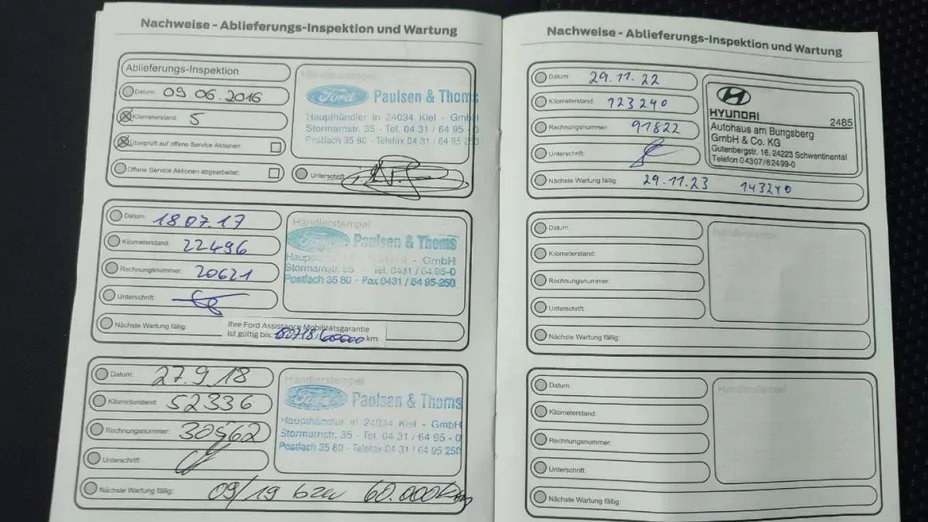 Nachweise - Ablieferungs-Inspektion und Wartung
Ablieferungs-Inspektion
Datum: 09 06.2016
Kilometerstand: 5
Überprüft auf offene Service Aktionen:
Offene Service Aktionen abgearbeitet:
Händlerstempel
Ford Paulsen & Thoms
Haupthändler in 24034 Kiel - GmbH
Stormarnstr. 35 - Tel. 04 31 / 64 95 - 0
Postfach 35 60 - Telefax 04 31 / 64 95
Unterschrift:
Datum: 18.07.17
Kilometerstand: 22496
Rechnungsnummer: 20621
Unterschrift:
Händlerstempel
Ford Paulsen & Thoms
GmbH
Stormarnstr. 35 - Tel. 0431 / 64 95-0
Postfach 35 60 - Fax 0431 / 64 95-250
Nächste Wartung fällig:
Ihre Ford Assistance Mobilitätsgarantie
ist gültig bis: 180718/60000 km
Datum: 27.9.18
Kilometerstand: 52336
Rechnungsnummer: 30562
Unterschrift:
Händlerstempel
Ford Paulsen & Thoms
Haupthändler in 24034 Kiel - GmbH
Stormarnstr. 35 - Tel. 04 31 / 64 95 - 0
Postfach 35 60 - Telefax 04 31 / 64 95 250
Nächste Wartung fällig: 09/19 bzw 60.000km
Nachweise - Ablieferungs-Inspektion und Wartung
Datum: 29.11.22
Kilometerstand: 123240
Rechnungsnummer: 91822
Unterschrift:
HYUNDAI 2485
Autohaus am Bungsberg
GmbH & Co. KG
Gutenbergstr. 16, 24223 Schwentinental
Telefon 04307/82499-0
Nächste Wartung fällig: 29.11.23 143240
Datum:
Kilometerstand:
Rechnungsnummer:
Unterschrift:
Händlerstempel
Nächste Wartung fällig:
Datum:
Kilometerstand:
Rechnungsnummer:
Unterschrift:
Händlerstempel
Nächste Wartung fällig: